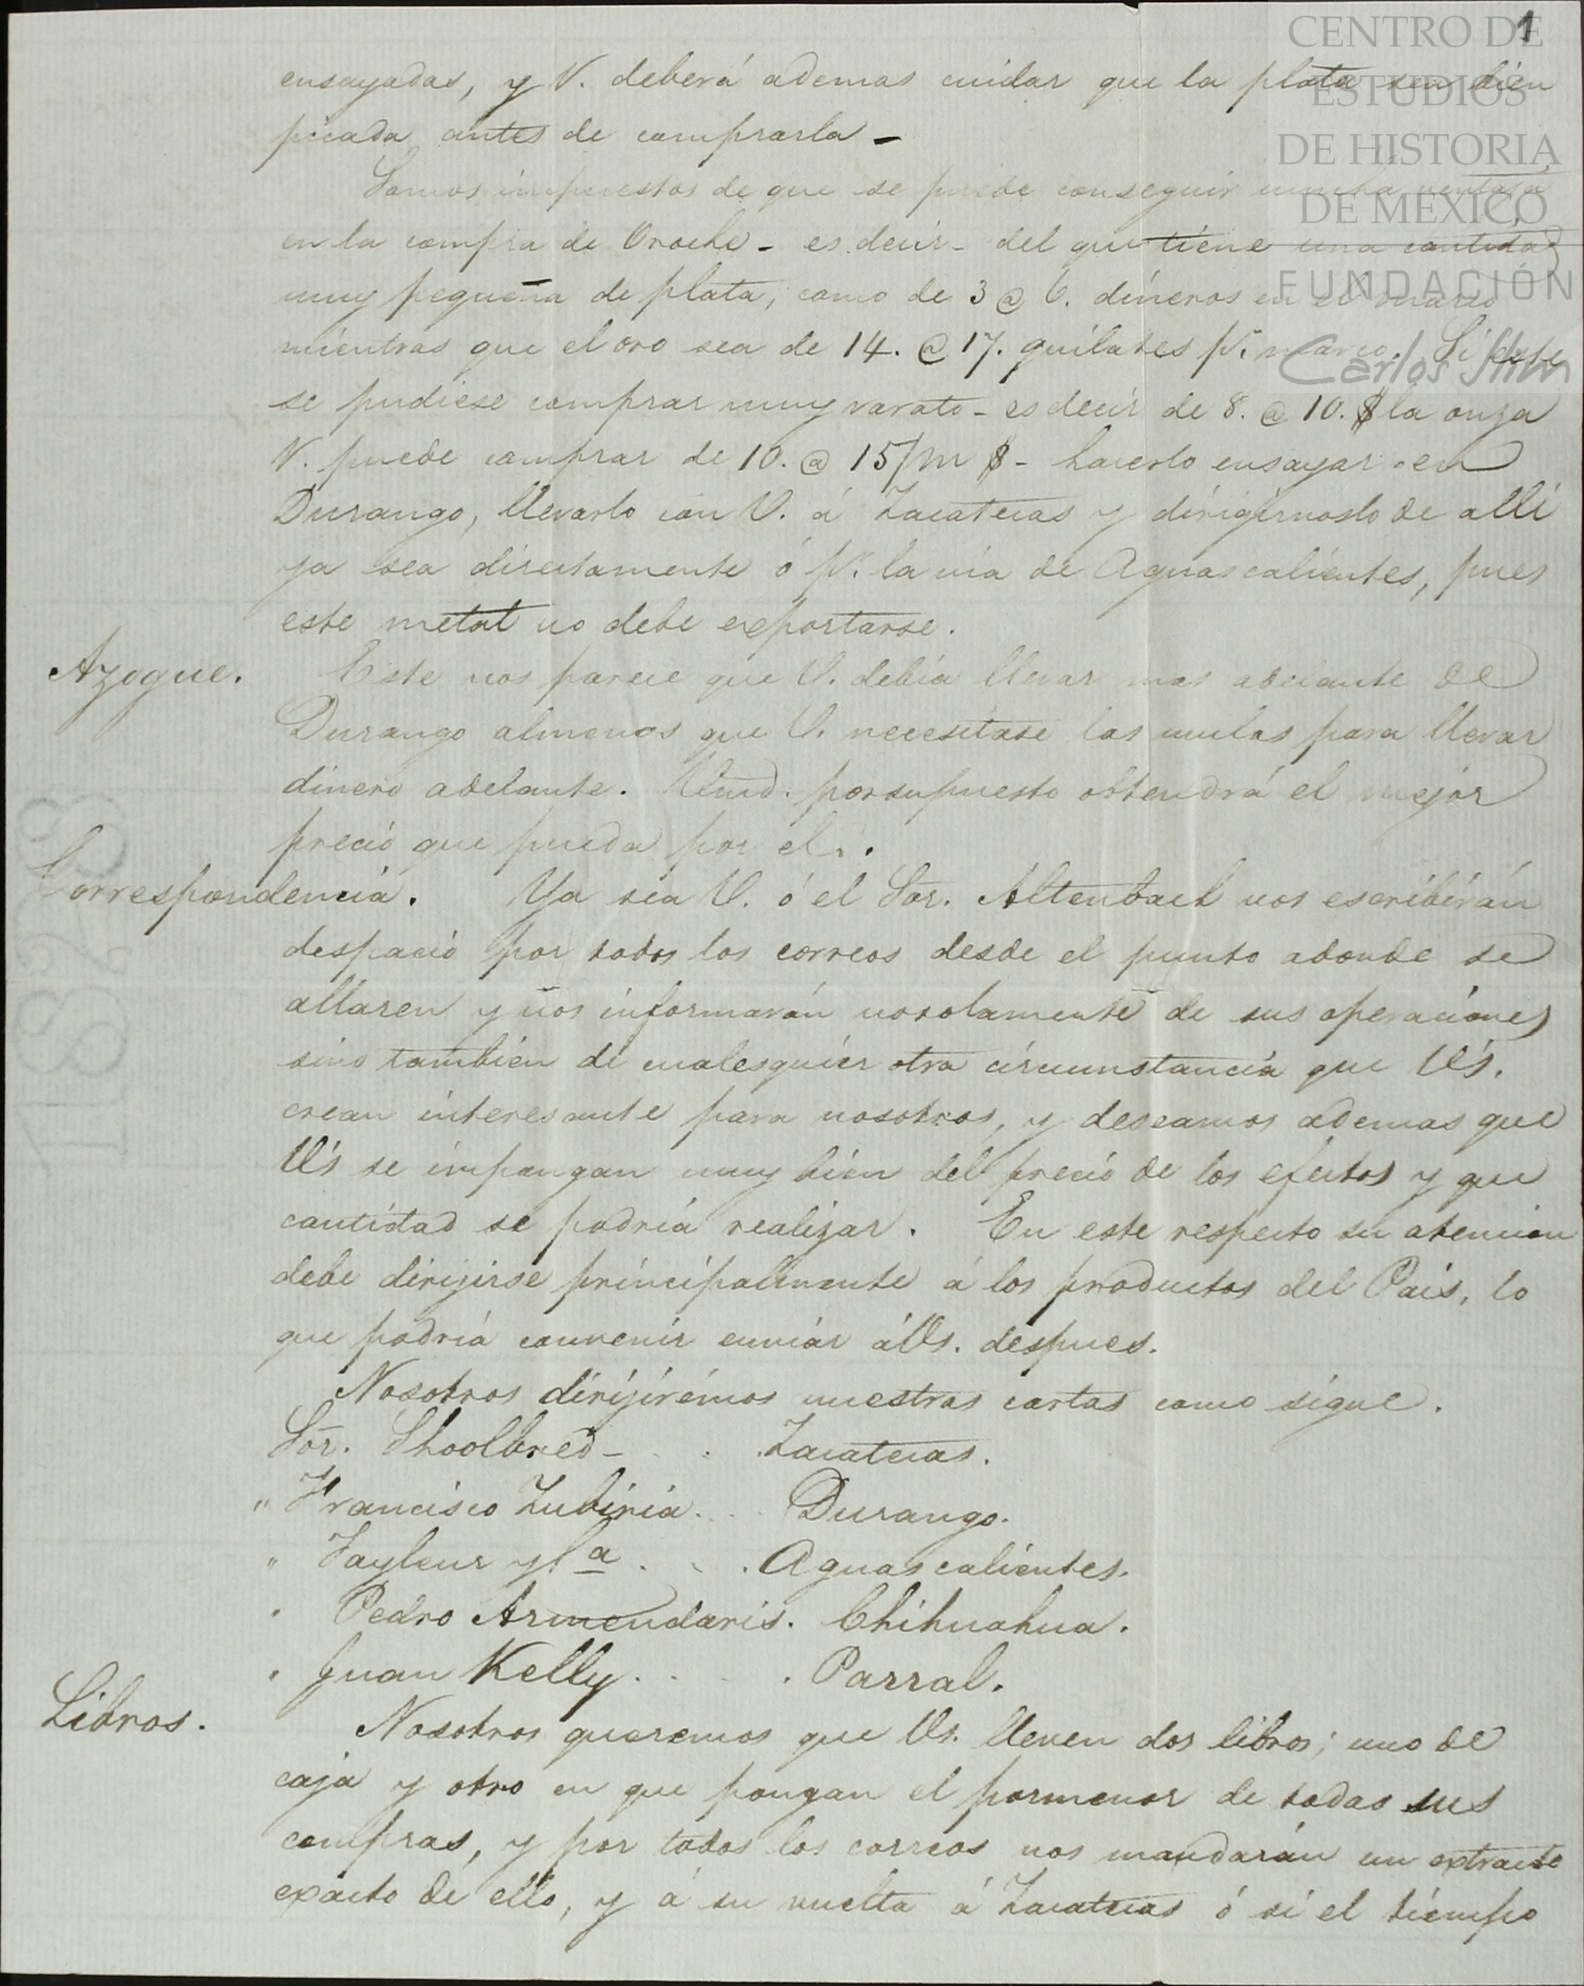 1
CENTRO DE
ESTUDIOS
DE HISTORIA
DE MÉXICO
FUNDACIÓN
Carlos Slim
ensayadas, y V. deberá ademas cuidar que la plata sea bien
picada antes de comprarla -
Somos impuestos de que se puede conseguir mucha ventaja
en la compra de Oroche - es decir - del que tiene una cantidad
muy pequeña de plata, como de 3 @ 6. dineros en el marco
mientras que el oro sea de 14. @ 17. quilates pr. marco. Si este
se pudiese comprar muy varato - es decir de 8. @ 10. $ la onza
V. puede comprar de 10. @ 15/m $ - hacerlo ensayar en
Durango, llevarlo con V. á Zacatecas y dirigirnoslo de alli
ya sea directamente ó pr. la via de Aguascalientes, pues
este metal no debe exportarse.
Azogue. Este nos parece que V. debia llevar mas adelante de
Durango almenos que V. necesitase las mulas para llevar
dinero adelante. Vmd. porsupuesto obtendrá el mejor
precio que pueda por el.
Correspondencia. Ya sea V. ó el Sor. Altenbach nos escribirán
despacio por todos los correos desde el punto adonde se
allaren y nos informarán nosolamente de sus operaciones
sino tambien de cualesquier otra circumstancia que Vs.
crean interesante para nosotros, y deseamos ademas que
Vs se impongan muy bien del precio de los efectos y que
cantidad se podria realizar. En este respecto su atencion
debe dirijirse principalmente á los productos del Pais, lo
que podria convenir enviar á Vs. despues.
Nosotros dirijirémos nuestras cartas como sigue.
Sor. Shoolbred - . . Zacatecas.
" Francisco Zubiria . . . Durango.
" Tayleur y Ca . . . Aguascalientes.
" Pedro Armendaris. Chihuahua.
" Juan Kelly . . . . Parral.
Libros. Nosotros queremos que Vs. lleven dos libros; uno de
caja y otro en que pongan el pormenor de todas sus
compras, y por todos los correos nos mandarán un extracto
exacto de ello, y á su vuelta á Zacatecas ó si el tiempo